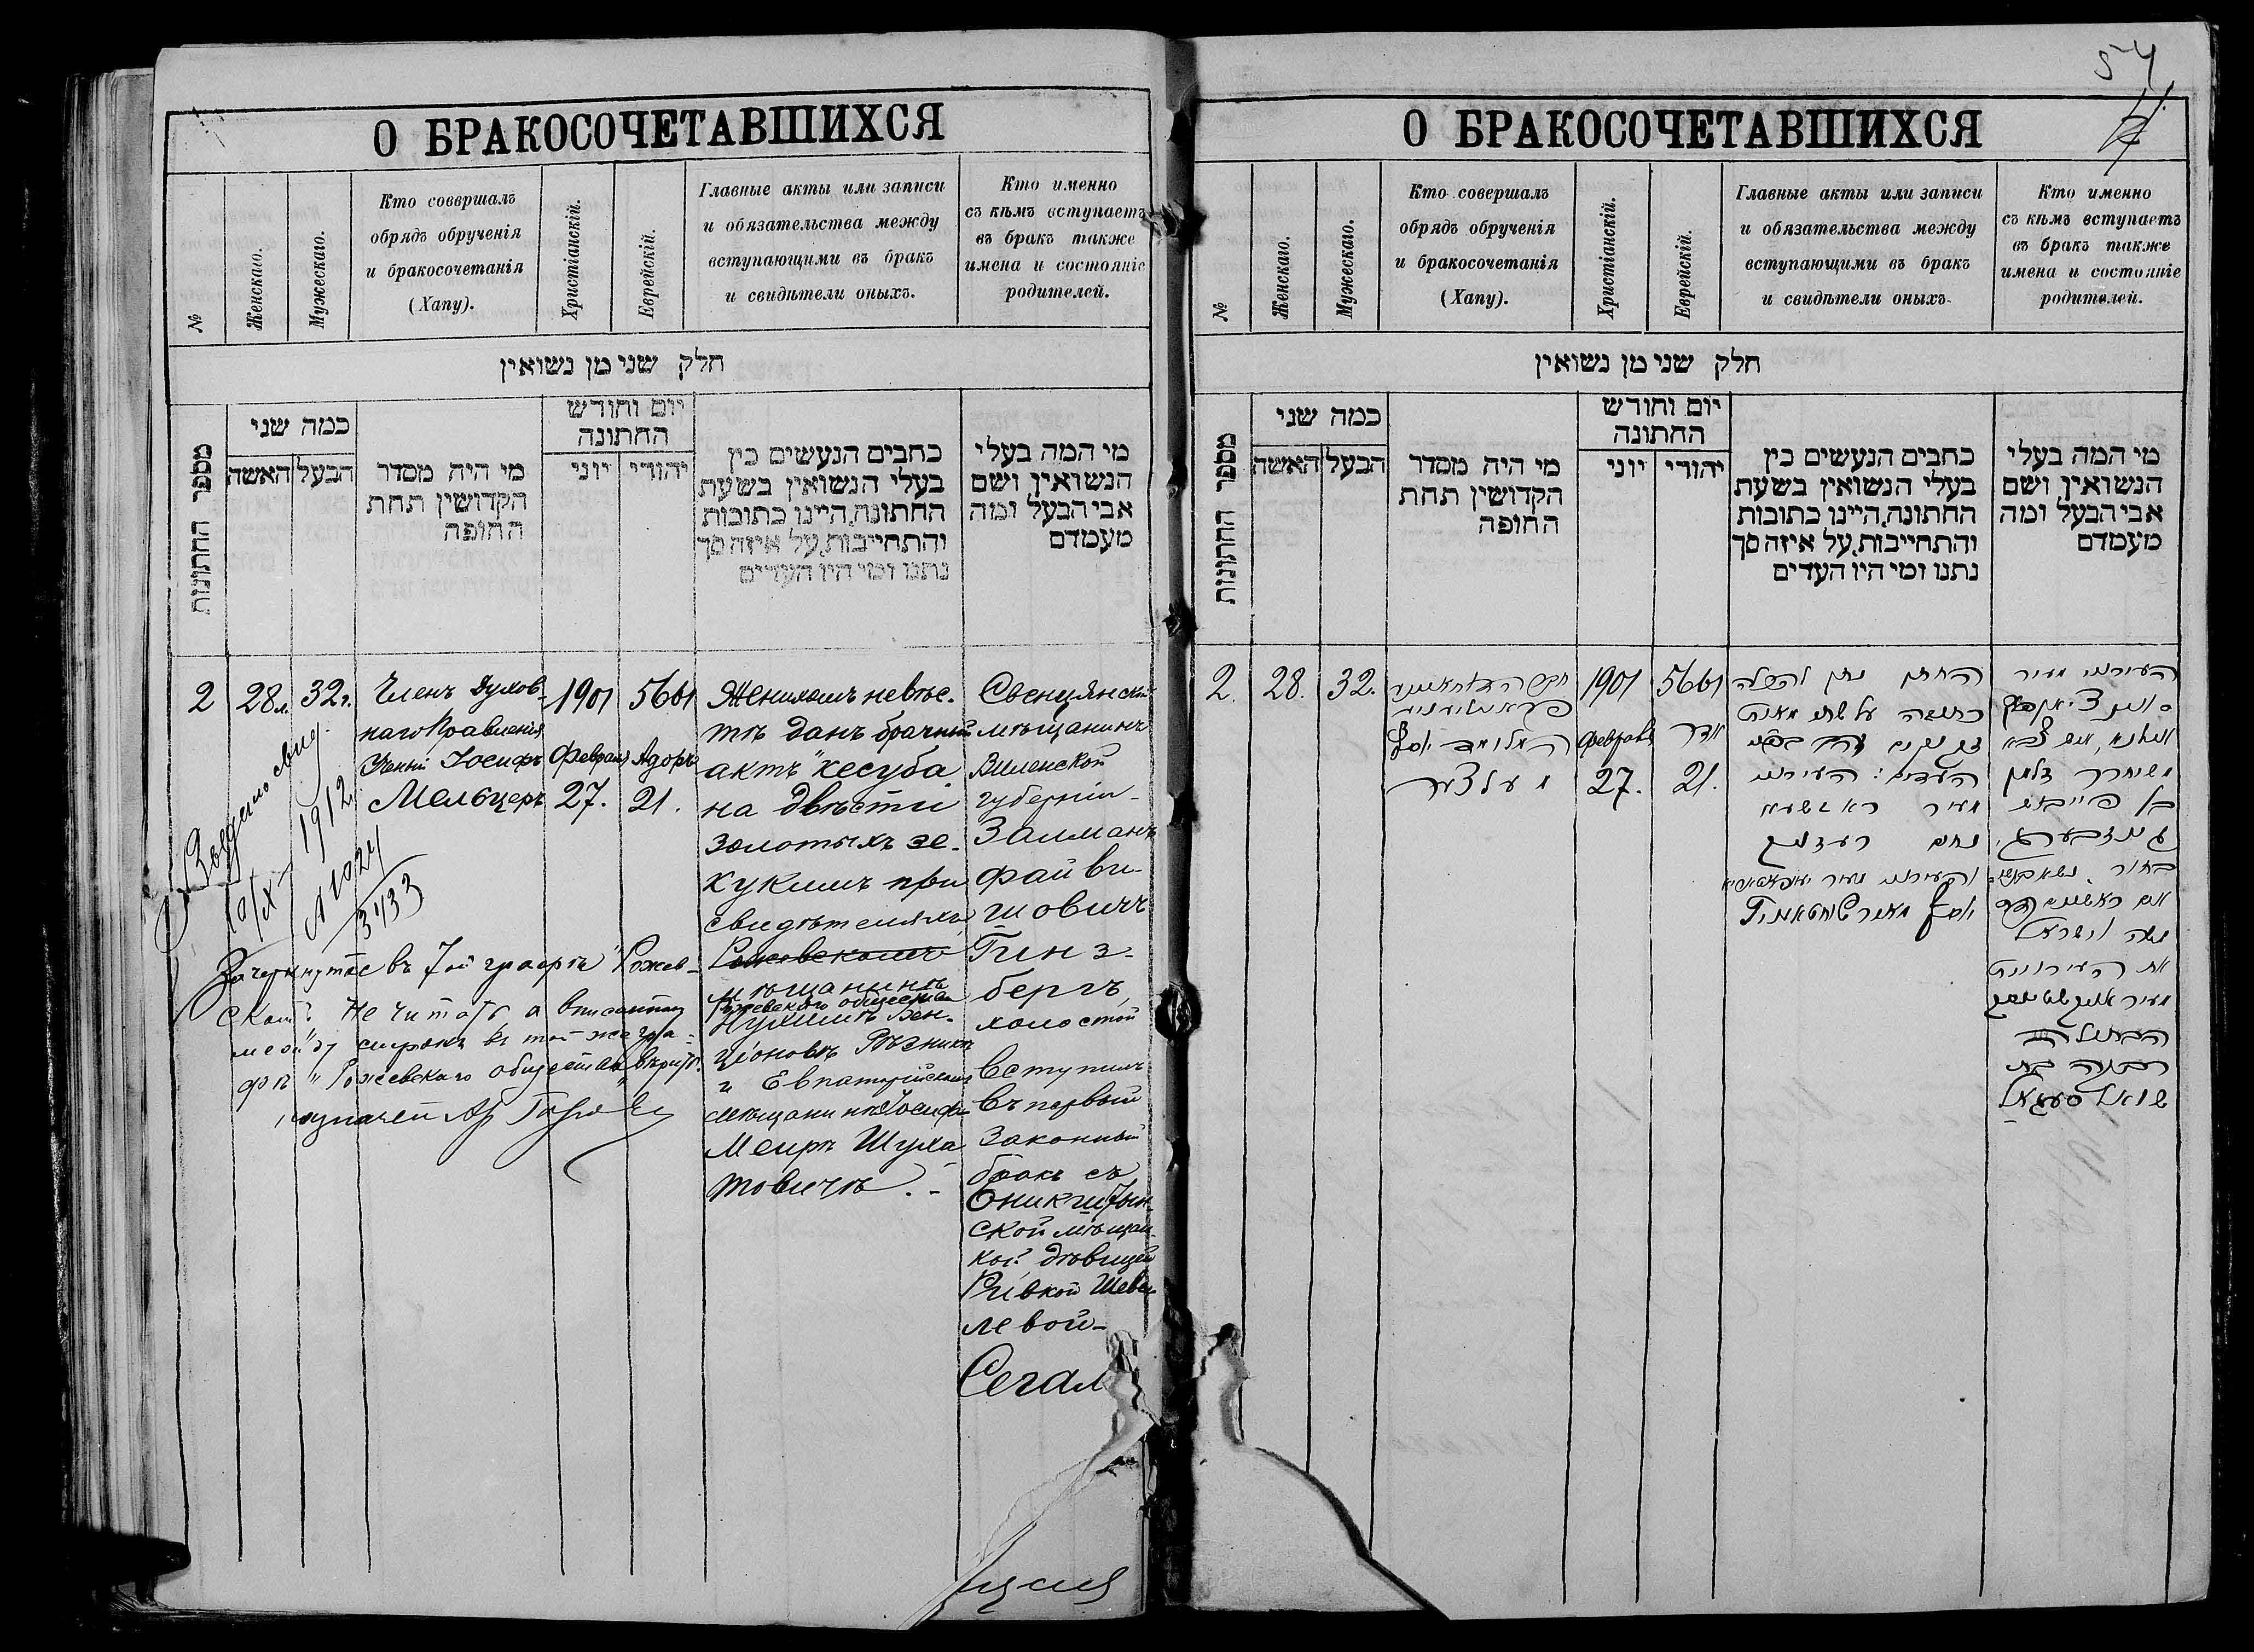 О БРАКОСОЧЕТАВШИХСЯ
№
Женскаго.
Мужескаго.
Кто совершалъ
обрядъ обрученія
и бракосочетанія
(Хапу).
Христіанскій.
Еврейскій.
Главные акты или записи
и обязательства между
вступающими въ бракъ
и свидѣтели оныхъ.
Кто именно
съ кѣмъ вступаетъ
въ бракъ также
имена и состояніе
родителей.
חלק שני מן נשואין
מספר החתונות
כמה שני
הבעל
האשה
מי היה מסדר
הקדושין תחת
החופה
יום וחודש
החתונה
יהודי
יוני
כתבים הנעשים בין
בעלי הנשואין בשעת
החתונה, היינו כתובות
והתחייבות, על איזה סך
נתנו ומי היו העדים
מי המה בעלי
הנשואין ושם
אבי הבעל ומה
מעמדם
2
28 л.
32 г.
Членъ Духов-
наго Правленія
Ученый Іосифъ
Мельцеръ
1901
Февраля
27.
5661
Адоръ
21.
Женихомъ невѣс-
тѣ данъ брачный
актъ "кесуба
на двѣсти
золотыхъ зе-
хукимъ при
свидѣтеляхъ
Рожевскомъ
мѣщанинѣ
Рожевскаго общества
Нухимъ Бен-
ціоновъ Рѣзникъ
и Евпаторійскомъ
мѣщанинѣ Іосифъ
Меиръ Шулха
товичъ . -
Свенцянскій
мѣщанинъ
Виленской
губерніи
Залманъ
Файви-
шовичъ
Гинз-
бергъ,
холостой
вступилъ
въ первый
законный
бракъ съ
Оникштын-
ской мѣщан-
кой дѣвицей
Ривкой Шеве-
левой-
Сегал
Выдано свид.
10/X 1912
№ 1024
3433
Зачеркнутое въ 7ой графѣ "Рожев-
ском" не читать а вписанное
между строкъ въ той же гра-
фѣ "Рожевскаго общества" вѣрить.
54
О БРАКОСОЧЕТАВШИХСЯ
№
Женскаго.
Мужескаго.
Кто совершалъ
обрядъ обрученія
и бракосочетанія
(Хапу).
Христіанскій.
Еврейскій.
Главные акты или записи
и обязательства между
вступающими въ бракъ
и свидѣтели оныхъ.
Кто именно
съ кѣмъ вступаетъ
въ бракъ также
имена и состояніе
родителей.
חלק שני מן נשואין
מספר החתונות
כמה שני
הבעל
האשה
מי היה מסדר
הקדושין תחת
החופה
יום וחודש
החתונה
יהודי
יוני
כתבים הנעשים בין
בעלי הנשואין בשעת
החתונה, היינו כתובות
והתחייבות, על איזה סך
נתנו ומי היו העדים
מי המה בעלי
הנשואין ושם
אבי הבעל ומה
מעמדם
2.
28.
32.
המלומד יוסף
מעלצער
1901
Февраль
27.
5661
אדר
21.
החתן נתן להכלה
כתובה על שתי מאות
העדים: העירוני
מעיר
נחום רעזניק
והעירוני מעיר
יוסף מאיר
העירוני מעיר
זלמן
בן פייבוש
גינצבערג,
בחור
משה וישראל
את העירונית
מעיר
הבתולה
רבקה בת
סעגאל